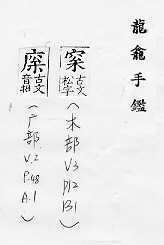 龍龕手鑑
古文
松字
(木部 V3 P12 B1)
古文
音相
(广部 V.2 P.48 A.1)